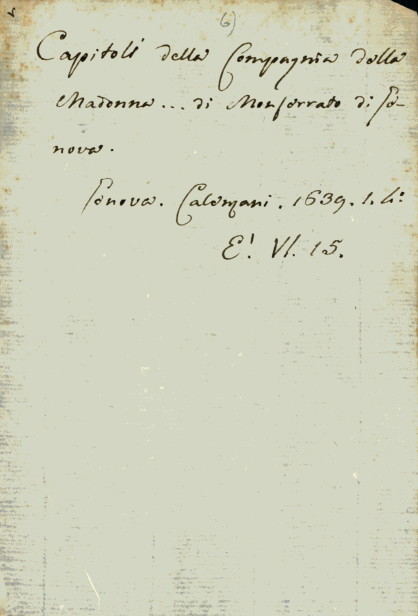 (6)
Capitoli della Compagnia della
Madonna... di Monferrato di Ge-
nova.
Genova. Calenzani. 1639. 1. 4:
E! VI. 15.